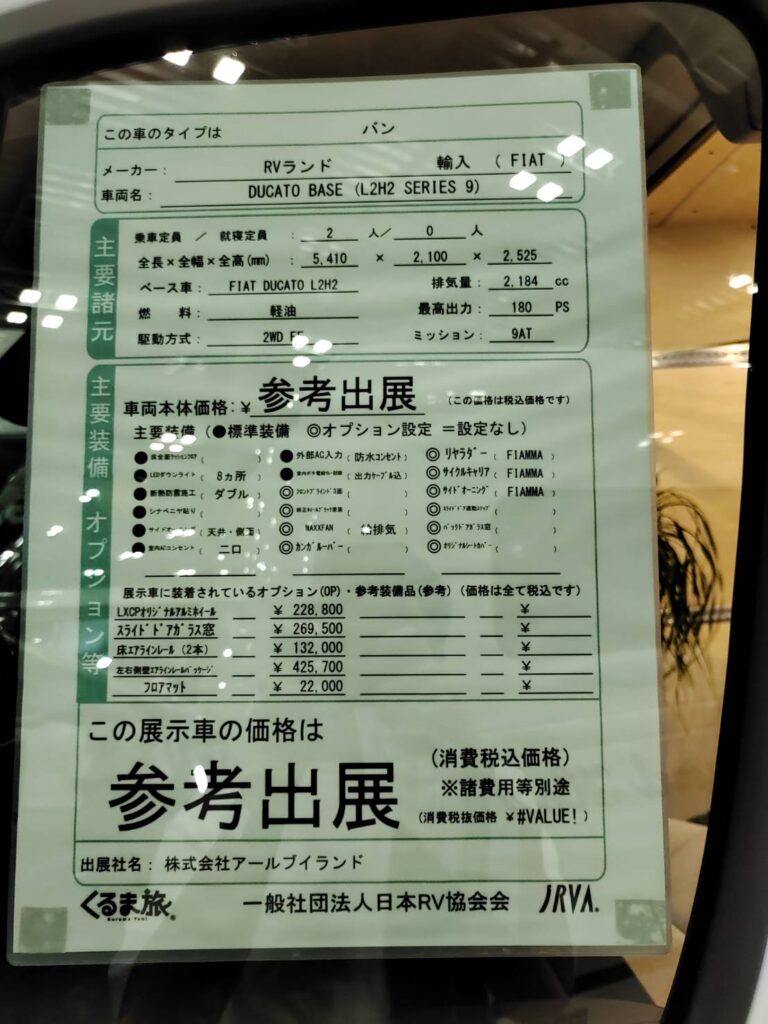 この車のタイプは バン
メーカー: RVランド 輸入 ( FIAT )
車両名: DUCATO BASE (L2H2 SERIES 9)
主要諸元
乗車定員 / 就寝定員 : 2 人/ 0 人
全長×全幅×全高(mm) : 5,410 × 2,100 × 2,525
ベース車: FIAT DUCATO L2H2 排気量: 2,184 cc
燃 料: 軽油 最高出力: 180 PS
駆動方式: 2WD FF ミッション: 9AT
主要装備 オプション等
車両本体価格:¥ 参考出展 (この価格は税込価格です)
主要装備 (●標準装備 ◎オプション設定 =設定なし)
●床全面クッションフロア ( ) ●外部AC入力 ( 防水コンセント ) ◎リヤラダー ( FIAMMA )
●LEDダウンライト ( 8ヵ所 ) ● ( 出力ケーブル込 ) ◎サイクルキャリア ( FIAMMA )
●断熱防震施工 ( ダブル ) ◎フロントブラインド3面 ( ) ◎サイドオーニング ( FIAMMA )
●シナベニヤ貼り ( ) ◎ ( ) ◎スライドドア連動ステップ ( )
● ( 天井・側面 ) ◎MAXXFAN ( 給排気 ) ◎バックドアガラス窓 ( )
●室内ACコンセント ( 二口 ) ◎カンガルーバー ( ) ◎オリジナルシートカバー ( )
展示車に装着されているオプション(OP)・参考装備品(参考) (価格は全て税込です)
LXCPオリジナルアルミホイール ¥ 228,800 ¥
スライドドアガラス窓 ¥ 269,500 ¥
床エアラインレール (2本) ¥ 132,000 ¥
左右側壁エアラインレールパッケージ ¥ 425,700 ¥
フロアマット ¥ 22,000 ¥
この展示車の価格は
参考出展
(消費税込価格)
※諸費用等別途
(消費税抜価格 ¥#VALUE! )
出展社名: 株式会社アールブイランド
くるま旅® Kuruma Tabi 一般社団法人日本RV協会会 JRVA.